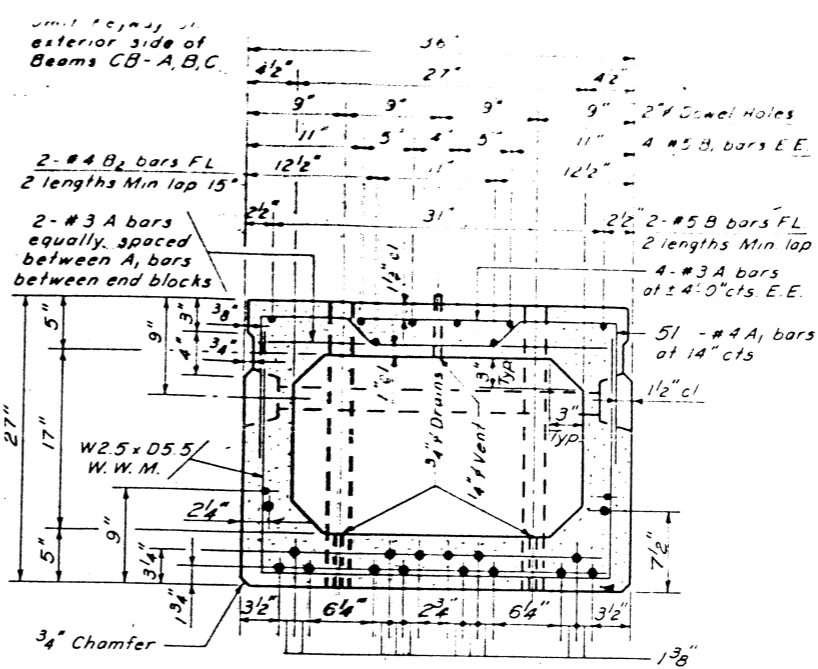 exterior side of
Beams CB-A,B,C
36"
4½" 27" 4½"
9" 9" 9" 9" 2"∅ Dowel Holes
11" 5" 4" 5" 11" 4 #5 B₁ bars E.E.
2-#4 B₂ bars FL
2 lengths Min lap 15"
12½" 11" 12½"
2½" 31" 2½"
2-#5 B bars FL
2 lengths Min lap
2-#3 A bars
equally spaced
between A₁ bars
between end blocks
1½" cl
4-#3 A bars
at ± 4'-0" cts. E.E.
51 -#4 A₁ bars
at 14" cts
27"
5"
17"
5"
9"
3"
4"
3/8"
3/4"
1" cl
3"
Typ
3"
Typ
1½" cl
¾"∅ Drains
¼"∅ Vent
W2.5 x D5.5
W.W.M.
2¼"
9"
3¼"
1¾"
7½"
3½" 6¼" 2¾" 6¼" 3½"
¾" Chamfer
1⅜"